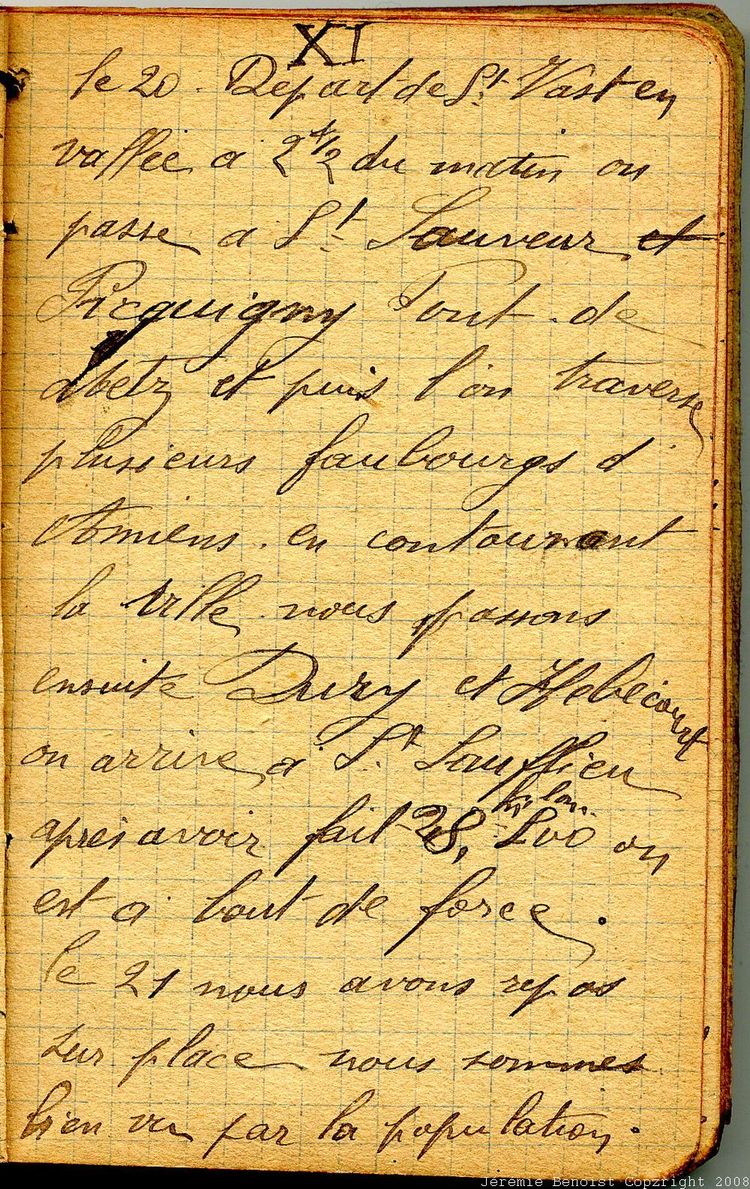 XI
le 20. Depart de St Vast en
vallée a 2 1/2 du matin on
passe a St Sauveur et
Picquigny Pont. de
Metz et puis l'on traverse
plusieurs faubourgs d
Amiens. en contournant
la ville nous passons
ensuite Dury et Hebécourt
on arrive a St Sauflieu
kilom.
apres avoir fait 28, 500 on
est a bout de force.
le 21 nous avons repos
sur place nous sommes
bien vu par la population.
Jeremie Benoist Copyright 2008